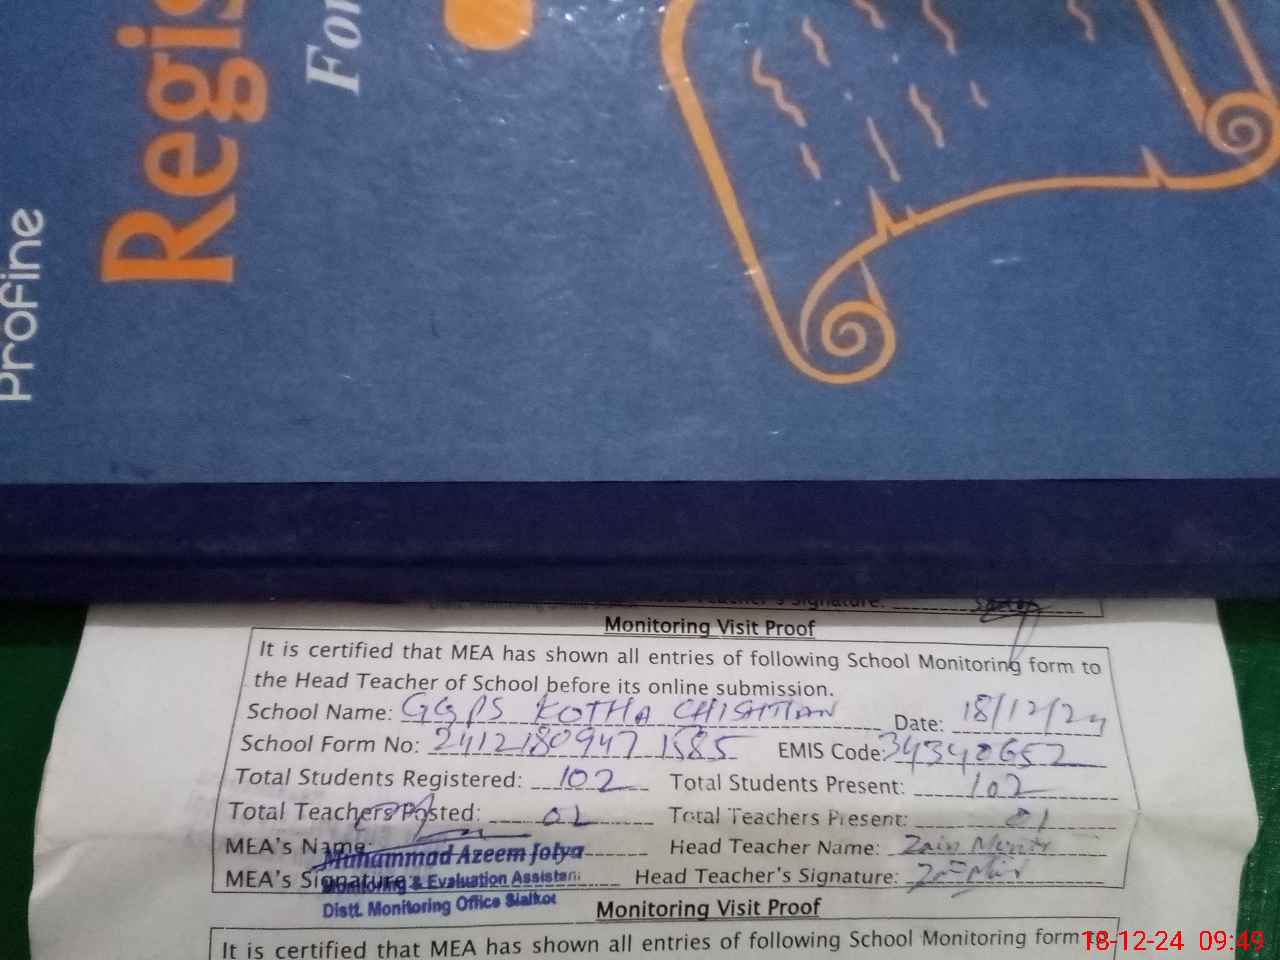 Profine
Regis
For
Teacher's Signature:
Monitoring Visit Proof
It is certified that MEA has shown all entries of following School Monitoring form to
the Head Teacher of School before its online submission.
School Name: GGPS KOTHA CHISHTIAN Date: 18/12/24
School Form No: 2412180947 1585 EMIS Code: 34340652
Total Students Registered: 102 Total Students Present: 102
Total Teachers Posted: 02 Total Teachers Present: 01
MEA's Name: Head Teacher Name: Zain
Muhammad Azeem Joiya
MEA's Signature: Head Teacher's Signature:
Monitoring & Evaluation Assistant
Distt. Monitoring Office Sialkot
Monitoring Visit Proof
It is certified that MEA has shown all entries of following School Monitoring form to
18-12-24 09:49